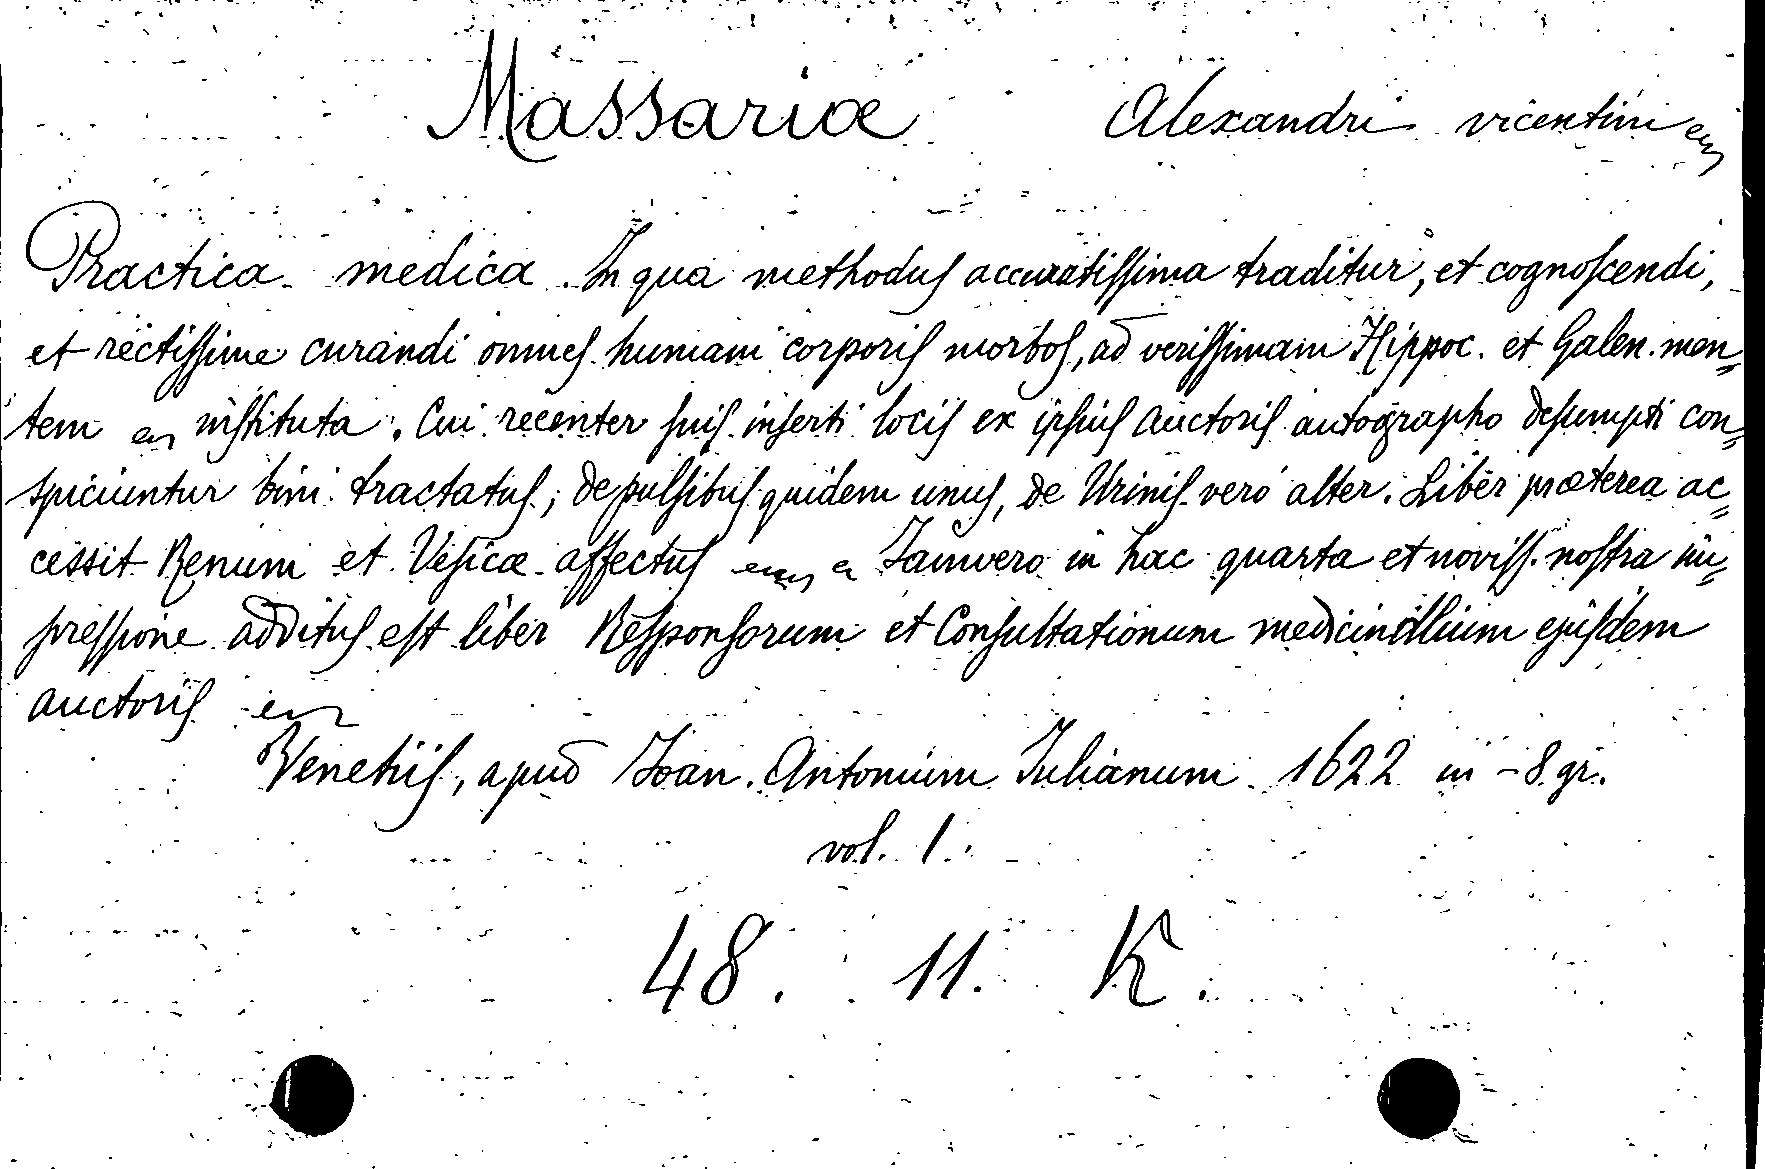 Massariæ Alexandri vicentini
Practica medica. In qua methodus accuratissima traditur, et cognoscendi,
et rectissime curandi omnes humani corporis morbos, ad verissimam Hippoc. et Galen. men-
tem instituta. Cui recenter suis inserti locis ex ipsius auctoris autographo desumpti con-
spiciuntur bini tractatus; de pulsibus quidem unus, de Urinis vero alter. Liber præterea ac-
cessit Renum et Vesicæ affectus Iamvero in hac quarta et noviss. nostra im-
pressione additus est liber Responsorum et Consultationum medicinalium ejusdem
auctoris
Venetiis, apud Ioan. Antonium Iulianum 1622 in-8 gr.
vol. 1.
48. 11. K.